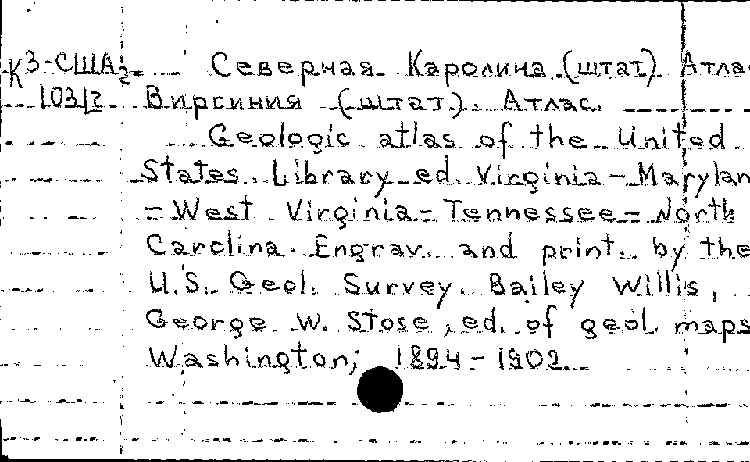 К3-США2 Северная Каролина (штат) Атла
103/2 Виргиния (штат). Атлас.
Geologic atlas of the United
States. Library ed. Virginia - Marylan
- West Virginia - Tennessee - North
Carolina. Engrav. and print. by the
U.S. Geol. Survey. Bailey Willis,
George W. Stose, ed. of geol. maps
Washington, 1894 - 1902